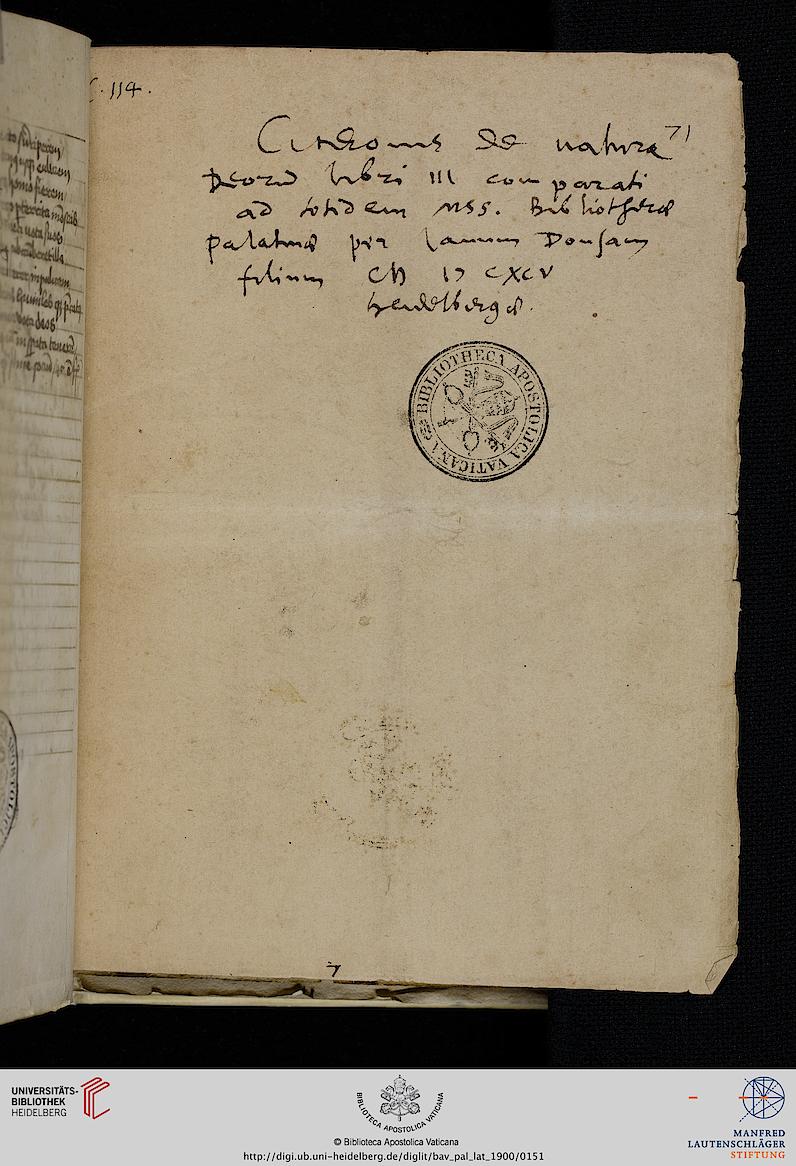 C. 114.
71
Ciceronis De natura
Deorū libri III comparati
ad totidem MSS. Bibliothecæ
palatinæ per Janum Dousam
filium CIↃ IↃ CXCV
Heidelbergæ.
BIBLIOTHECA APOSTOLICA VATICANA
7
UNIVERSITÄTS-
BIBLIOTHEK
HEIDELBERG
BIBLIOTECA APOSTOLICA VATICANA
© Biblioteca Apostolica Vaticana
http://digi.ub.uni-heidelberg.de/diglit/bav_pal_lat_1900/0151
MANFRED
LAUTENSCHLÄGER
STIFTUNG